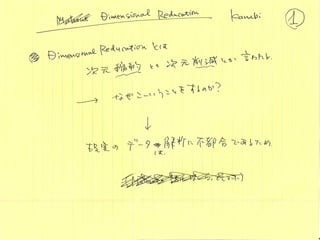 Dimensional Reducation Kanubi ①
Dimensional Reducation とは
次元推約 とか次元削減とか 言われる.
→ なぜこーいうことをするのか?
↓
現実の データは解析に不都合であるため